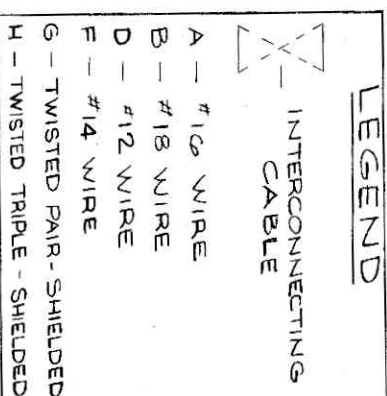 LEGEND
INTERCONNECTING
CABLE
A — #16 WIRE
B — #18 WIRE
D — #12 WIRE
F — #14 WIRE
G — TWISTED PAIR - SHIELDED
H — TWISTED TRIPLE - SHIELDED